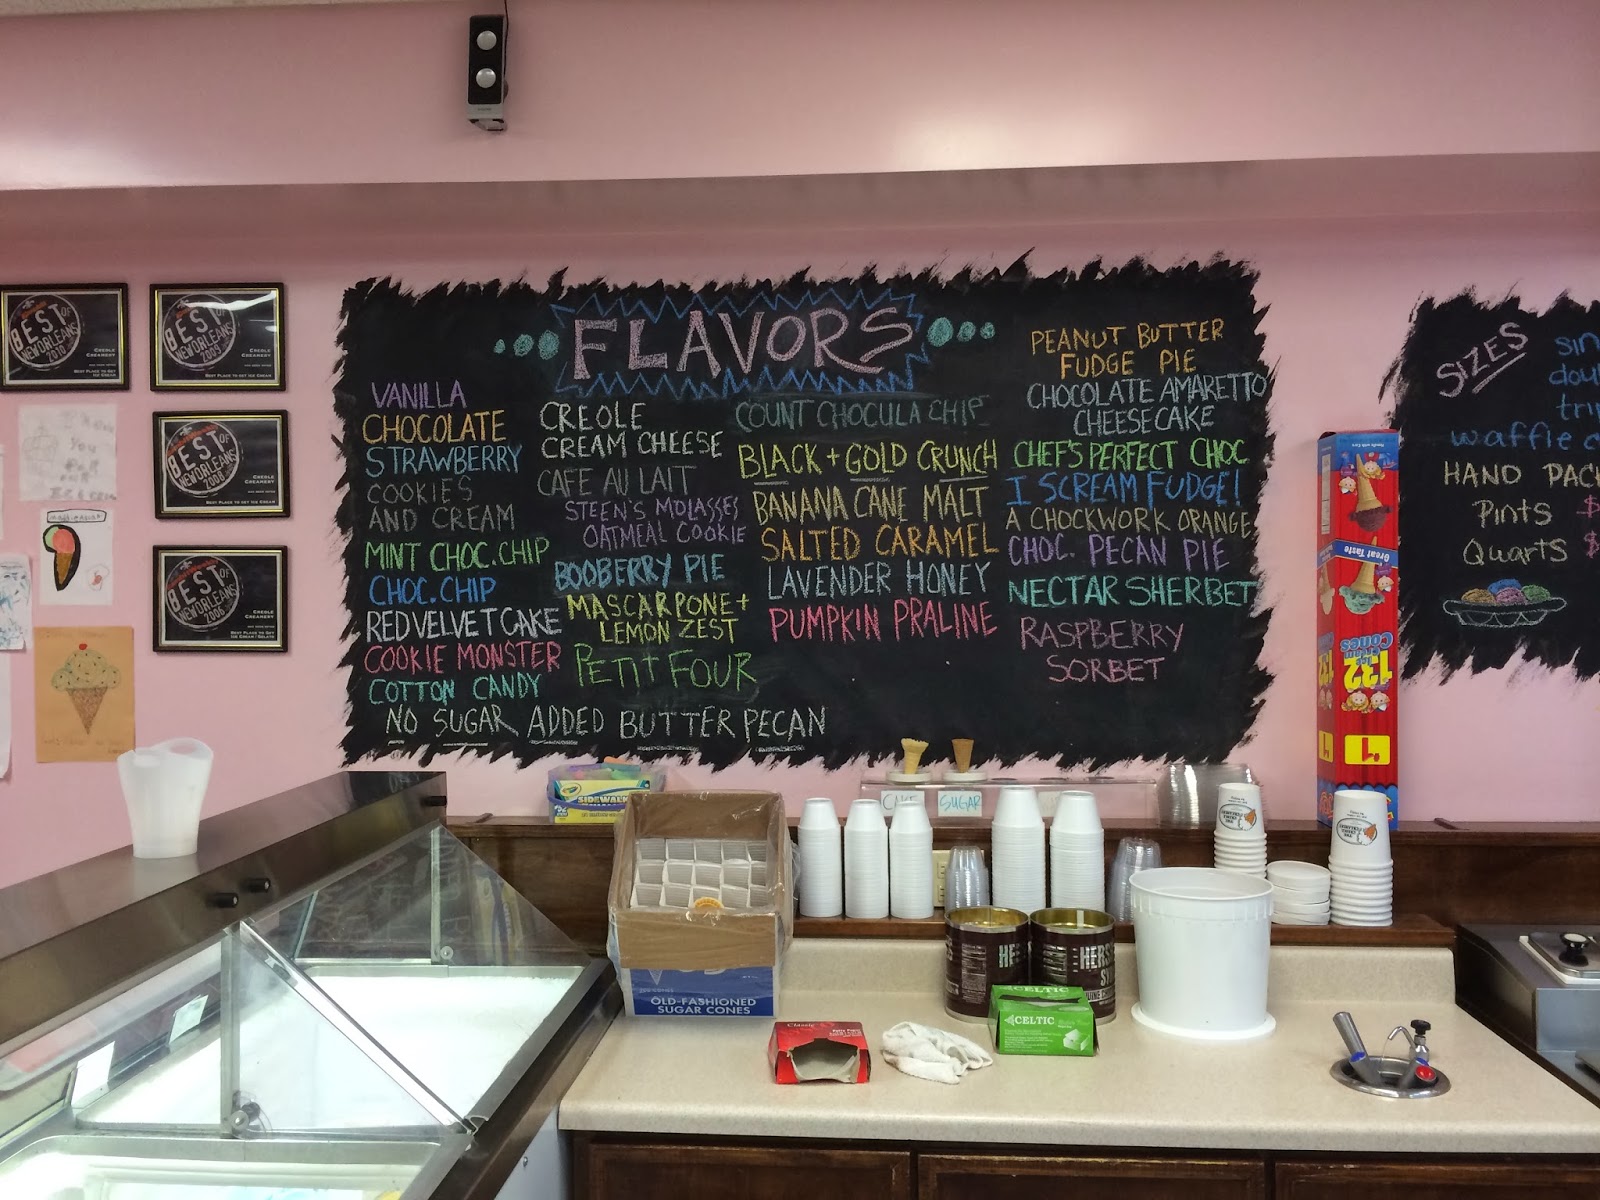 FLAVORS
VANILLA
CHOCOLATE
STRAWBERRY
COOKIES
AND CREAM
MINT CHOC.CHIP
CHOC.CHIP
RED VELVET CAKE
COOKIE MONSTER
COTTON CANDY
NO SUGAR ADDED BUTTER PECAN
CREOLE
CREAM CHEESE
CAFE AU LAIT
STEEN'S MOLASSES
OATMEAL COOKIE
BOOBERRY PIE
MASCARPONE+
LEMON ZEST
PETIT FOUR
COUNT CHOCULA CHIP
BLACK + GOLD CRUNCH
BANANA CANE MALT
SALTED CARAMEL
LAVENDER HONEY
PUMPKIN PRALINE
PEANUT BUTTER
FUDGE PIE
CHOCOLATE AMARETTO
CHEESECAKE
CHEF'S PERFECT CHOC
I SCREAM FUDGE!
A CHOCKWORK ORANGE
CHOC. PECAN PIE
NECTAR SHERBET
RASPBERRY
SORBET
SIZES
sin
dou
trip
waffle c
HAND PACK
Pints $
Quarts $
BEST OF
NEW ORLEANS
2010
CREOLE
CREAMERY
BEST PLACE TO GET ICE CREAM
BEST OF
NEW ORLEANS
2009
CREOLE
CREAMERY
BEST PLACE TO GET ICE CREAM
BEST OF
NEW ORLEANS
2008
CREOLE
CREAMERY
BEST PLACE TO GET ICE CREAM
BEST OF
NEW ORLEANS
2006
CREOLE
CREAMERY
BEST PLACE TO GET
ICE CREAM/GELATO
Great Taste
132
Ice Cream
Cones
CAKE
SUGAR
Crayola
SIDEWALK
OLD-FASHIONED
SUGAR CONES
Classic
CELTIC
CELTIC
HE
HERS
SY